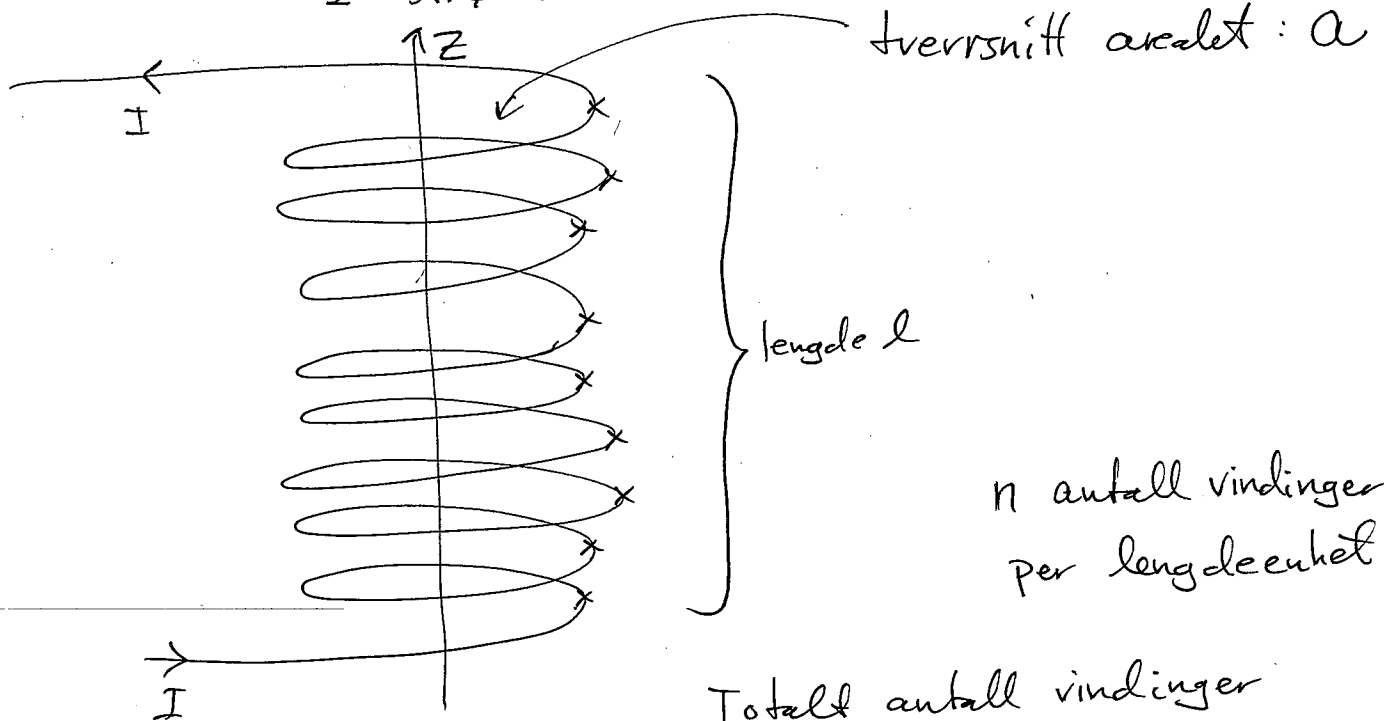 Z
tverrsnitt arealet : a
I
lengde l
n antall vindinger
per lengdeenhet
I
Totalt antall vindinger